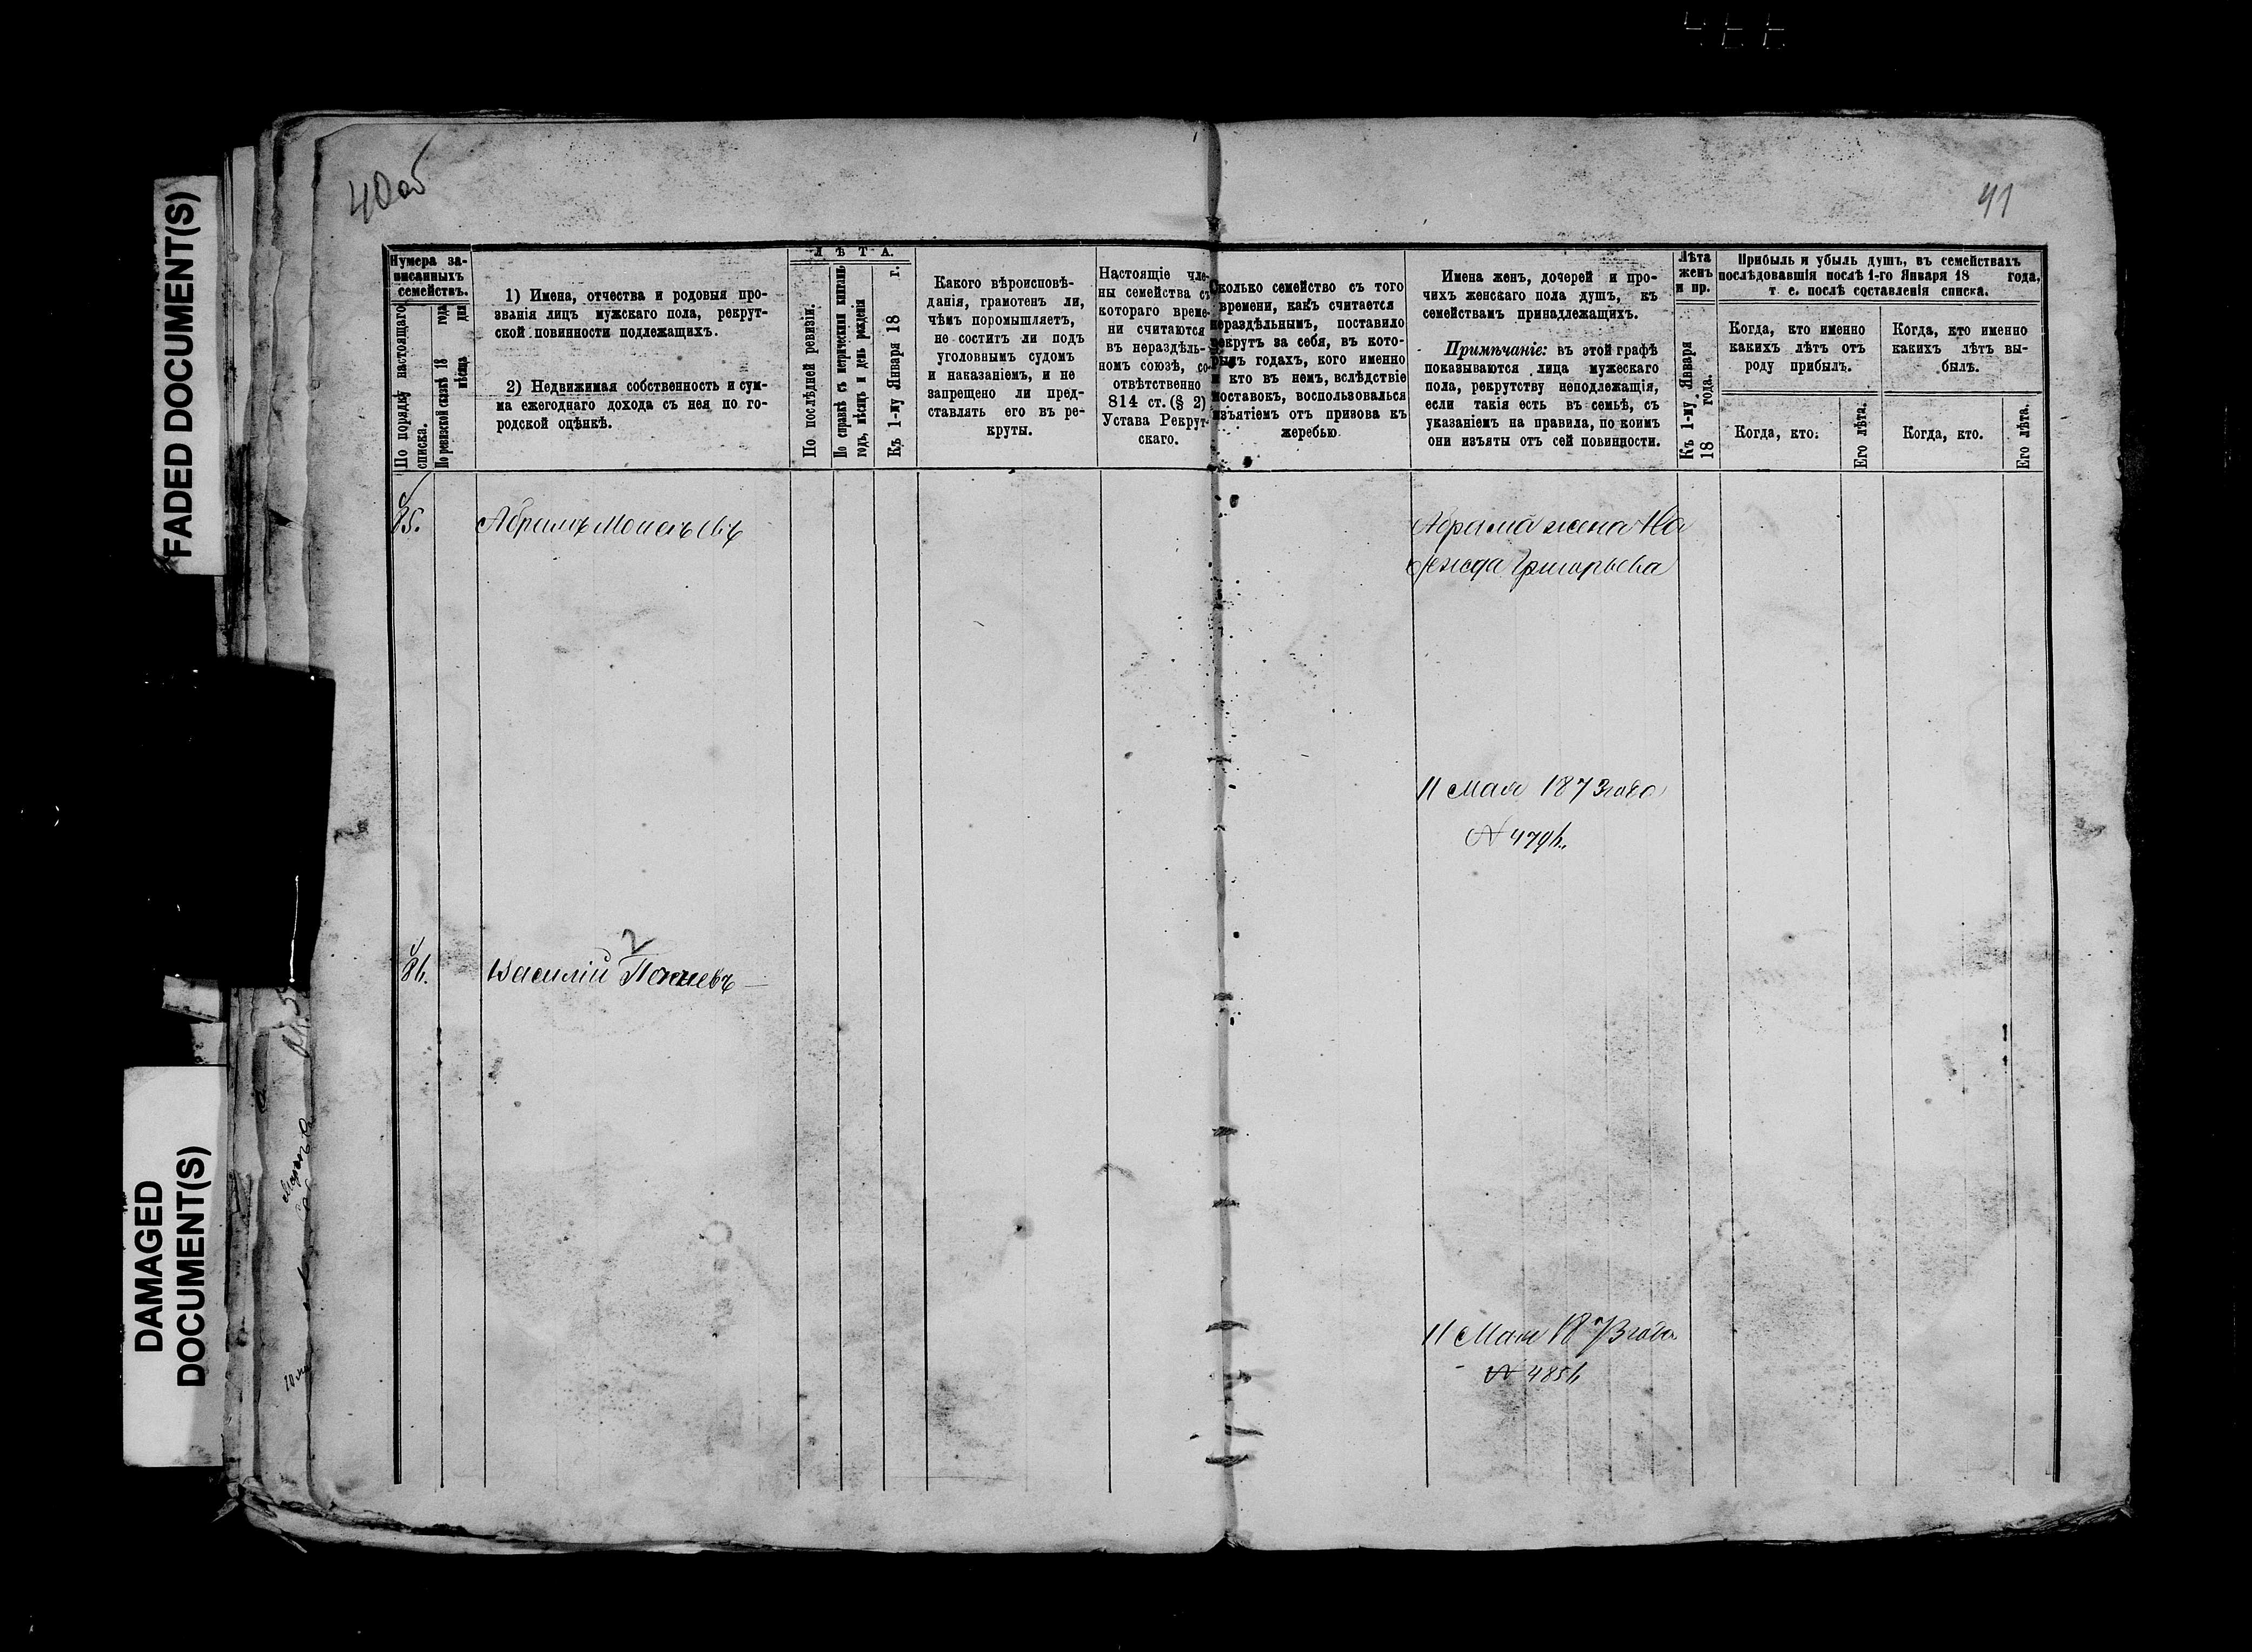 FADED DOCUMENT(S)
DAMAGED
DOCUMENT(S)
40об
41
Нумера за-
писанныхъ
семействъ.
По порядку настоящаго
списка.
По ревизской сказкѣ 18 года
мѣсяца дня
1) Имена, отчества и родовыя про-
званія лицъ мужскаго пола, рекрут-
ской повинности подлежащихъ.
2) Недвижимая собственность и сум-
ма ежегоднаго дохода съ нея по го-
родской оцѣнкѣ.
ЛѢТА.
По послѣдней ревизіи.
По справкѣ съ метрической книгань
годъ, мѣсяцъ и день рожденія
Къ 1-му Января 18 г.
Какого вѣроисповѣ-
данія, грамотенъ ли,
чѣмъ поромышляетъ,
не соститъ ли подъ
уголовнымъ судомъ
и наказаніемъ, и не
запрещено ли пред-
ставлять его въ ре-
круты.
Настоящіе чле-
ны семейства съ
котораго време-
ни считаются
въ нераздѣль-
номъ союзѣ, со-
отвѣтственно
814 ст. (§ 2)
Устава Рекрут-
скаго.
Сколько семейство съ того
времени, какъ считается
нераздѣльнымъ, поставило
рекрутъ за себя, въ кото-
рыхъ годахъ, кого именно
и кто въ немъ, вслѣдствіе
поставокъ, воспользовался
изъятіемъ отъ призова къ
жеребью.
Имена женъ, дочерей и про-
чихъ женскаго пола душъ, къ
семействамъ принадлежащихъ.
Примѣчаніе: въ этой графѣ
показываются лица мужескаго
пола, рекрутству неподлежащія,
если такія есть въ семьѣ, съ
указаніемъ на правила, по коимъ
они изъяты отъ сей повинности.
Лѣта
женъ
и пр.
Къ 1-му Января
18 года.
Прибыль и убыль душъ, въ семействахъ
послѣдовавшія послѣ 1-го Января 18 года,
т. е. послѣ составленія списка.
Когда, кто именно
какихъ лѣтъ отъ
роду прибылъ.
Когда, кто именно
какихъ лѣтъ вы-
былъ.
Когда, кто.
Его лѣта.
Когда, кто.
Его лѣта.
85.
Абрамъ
Абрама жена На
дежда Григорьева
11 Мая 1873 года
86.
Василій
11 Мая 1873 года